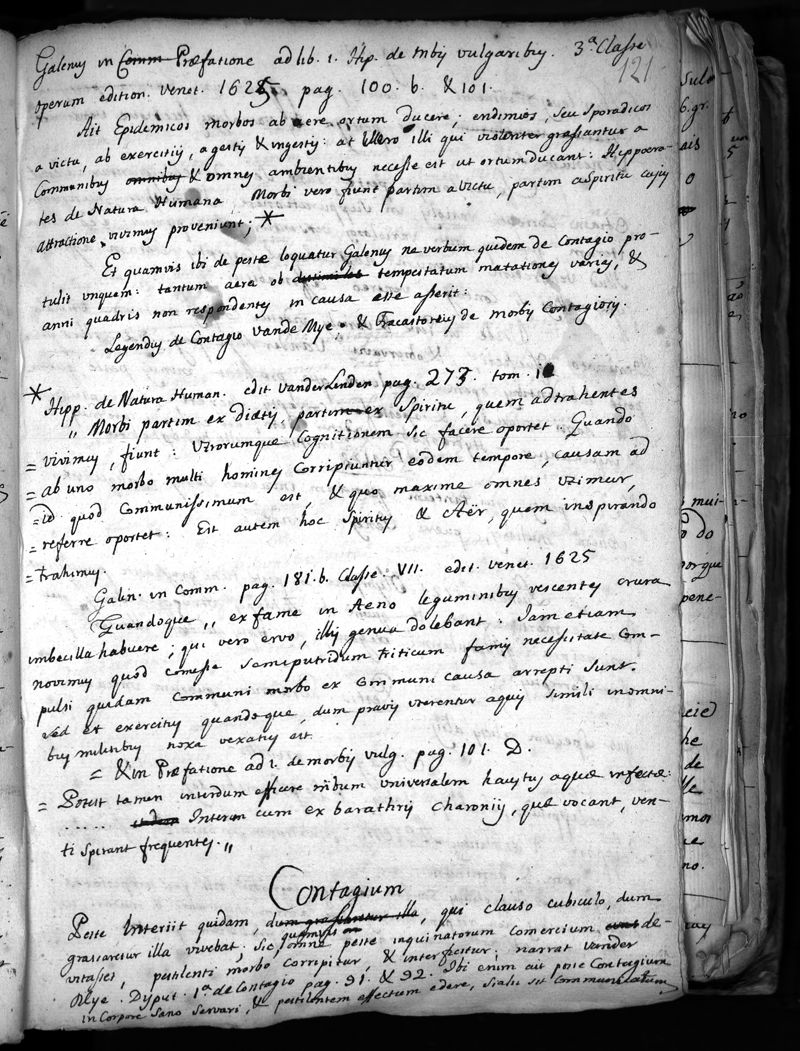 Galenus in Comm Præfatione ad lib. 1. Hip. de mbis vulgaribus. 3.ª Classe
121
operum edition. venet. 1625 pag. 100. b. & 101.
Ait Epidemicos morbos ab aere ortum ducere; endimios, seu Sporadicos
a victu, ab exercitijs, agestis & ingestis: at vero illi qui violenter grassantur a
Communibus omnibus & omnes ambientibus necesse est ut ortum ducant: Hippocra-
tes de Natura Humana Morbi vero fiunt partim a victu, partim a spiritu cujus
attractione vivimus proveniunt; *
Et quamvis ibi de peste loquatur Galenus ne verbum quidem de Contagio pro-
tulit unquem: tantum aera ob tempestatum mutationes varias, &
anni quadris non respondentes in causa esse asserit:
Legendus de Contagio vande Mye. & Fracastoreus de morbis Contagiosis.
* Hipp. de Natura Human. edit vander Linden pag. 273. tom. 1
„ Morbi partim ex diætis, partim ex Spiritu, quem adtrahentes
= vivimus, fiunt: Utrorumque Cognitionem sic facere oportet. Quando
= ab uno morbo multi homines Corripiuntur eodem tempore, causam ad
= id quod Communissimum est, & quo maxime omnes utimur,
= referre oportet: Est autem hoc Spiritus & Aër, quem inspirando
= trahimus.
Galin. in Comm. pag. 181. b. Classe. VII. edit. venet. 1625
Quandoque „ ex fame in Aeno leguminibus vescentes crura
imbecilla habuere; qui vero ervo, illis genua dolebant: Jam etiam
novimus quod comesse semiputridum triticum famis necessitate Com-
pulsi quidam Communi morbo ex Communi causa arrepti sunt.
sed et exercitus quandoque, dum pravis uterentur aquis simili in omni-
bus militibus noxa vexatus est.
= & in Præfatione ad 1. de morbis vulg. pag. 101. D.
= Potest tamen interdum efficere mbum universalem haustus aquæ infectæ:
...... Interim cum ex barathris Charonijs, quæ vocant, ven-
ti spirant frequentes. „
Contagium
Peste Interiit quidam, dum grassaretur illa, qui clauso cubiculo, dum
grassaretur illa vivebat; sic, quamvis omne peste inquinatorum comercium de-
vitasset, pestilenti morbo corripitur, & interficitur; narrat vander
Mye. Disput. 1.ª de Contagio pag. 91. & 92. Ibi enim ait posse Contagium
in Corpore sano servari, & pestilentem effectum edere, si alii sit communicatum